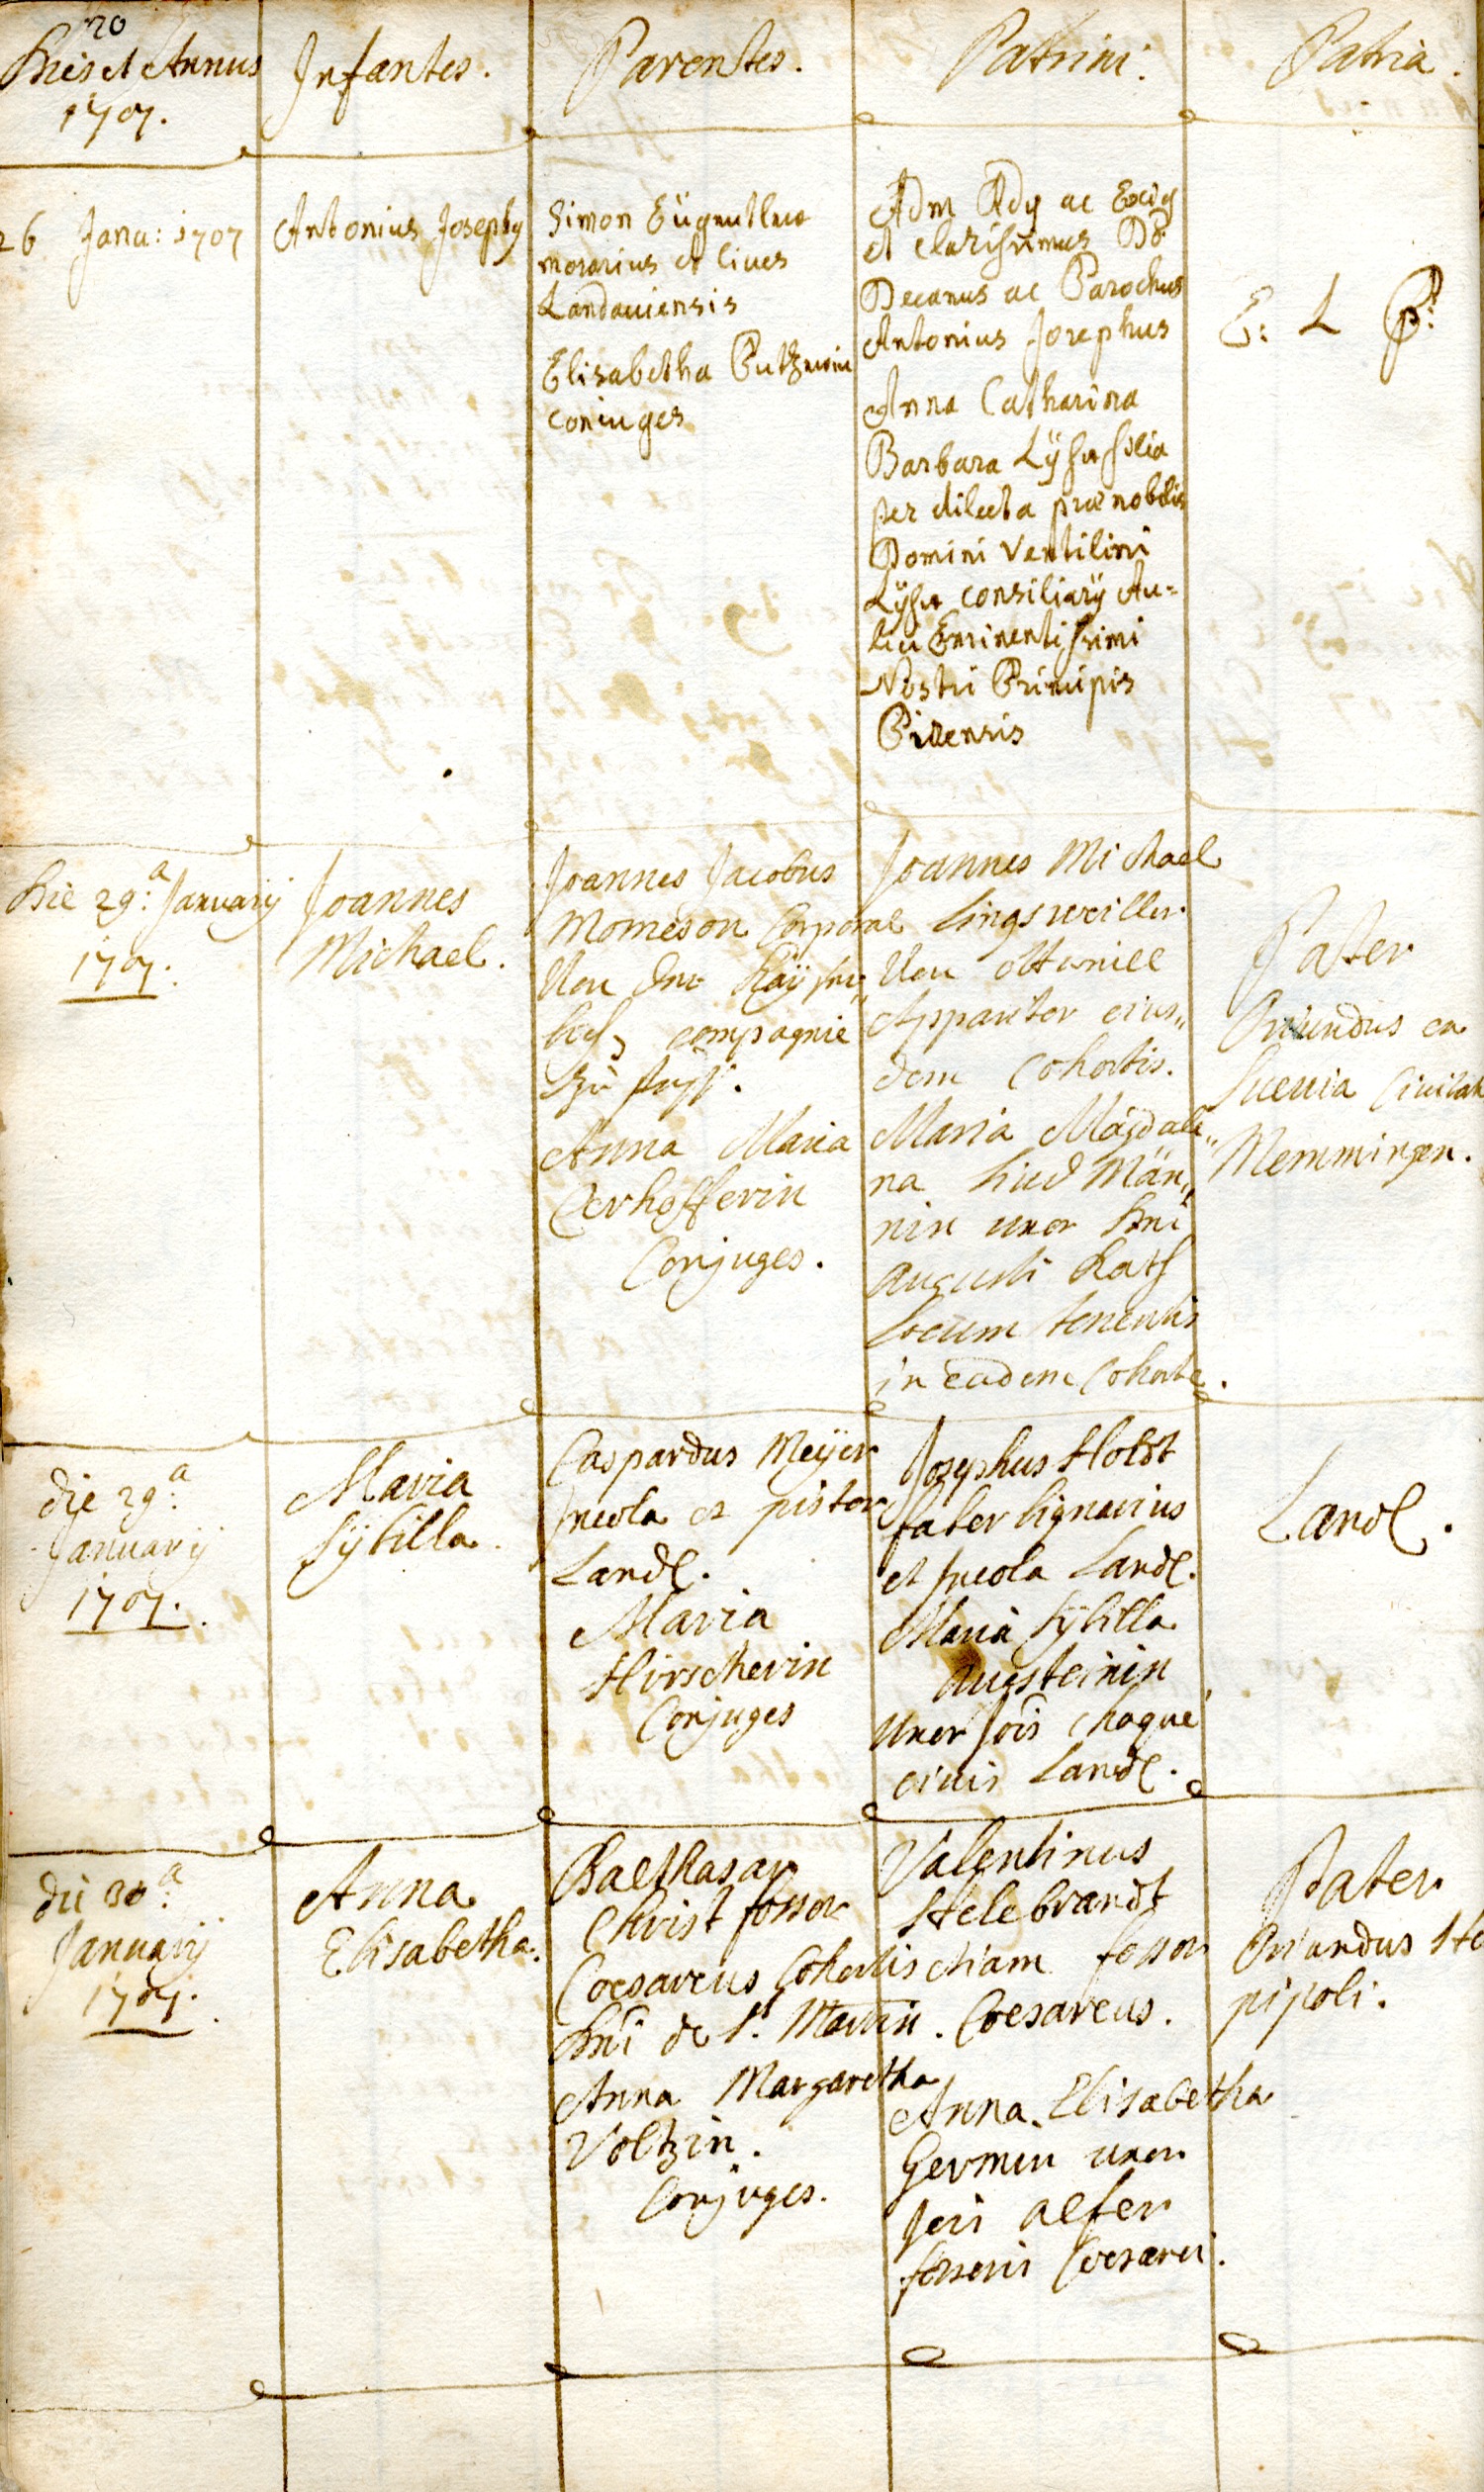 20
Dies et Annus
1707.
Infantes.
Parentes.
Patrini.
Patria.
26 Janu: 1707
Antonius Josephg
Simon
morarius et Ciues
Landauiensis
Elisabetha
coniuges
Adm Rdg ac Exig
et clarissimus Dd
Decanus ac Parochus
Antonius Josephus
Anna Catharina
Barbara filia
per dilecta prænobilis
Domini Ventilini
consiliarÿ Au=
lici Eminentissimi
Nostri Principis
E: L P:
Die 29:a Januarij
1707.
Joannes
Michael.
Joannes Jacobus
Momeson Corporal
Von der Kaÿser„
lich compagnie
zu fuss.
Anna Maria
Oerhofferin
Conjuges.
Joannes Michael
Lingsweiller
Von
Apparitor eius„
dem Cohortis.
Maria Magdale„
na Män„
nin uxor Dni
Augusti Rath
Locum tenentis
in eadem Cohorte.
Pater
Oriundus ex
Sueuia Ciuitate
Memmingen.
die 29:a
Januarij
1707.
Maria
Sÿbilla.
Caspardus Meÿer
Incola et pistor
Land.
Maria
Hirscherin
Conjuges
Josephus Holdt
faber lignarius
et Incola Land.
Maria Sÿbilla
Augsteinin
Uxor Jois chaque
ciuis Land.
Land.
die 30:a
Januarij
1707.
Anna
Elisabetha.
Balthasar
Christ fossor
Coesareus Cohortis
Dni de St. Martin.
Anna Margaretha
Voltzin.
Conjuges.
Valentinus
Helebrandt
etiam fossor
Coesareus.
Anna Elisabetha
Germin uxor
alfer
fossoris Coesarei.
Pater
Oriundus He
pipoli.